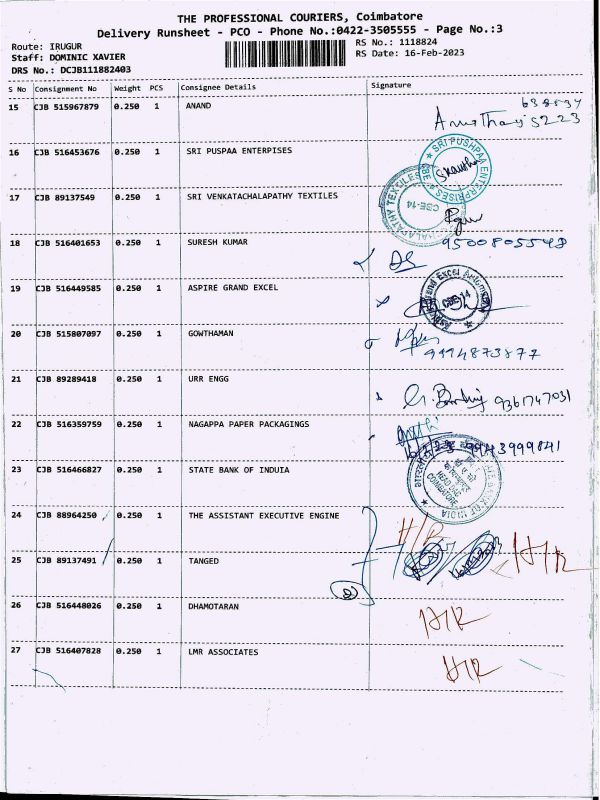 THE PROFESSIONAL COURIERS, Coimbatore
Delivery Runsheet - PCO - Phone No.:0422-3505555 - Page No.:3
Route: IRUGUR
RS No.: 1118824
Staff: DOMINIC XAVIER
RS Date: 16-Feb-2023
DRS No.: DCJB111882403
S No Consignment No Weight PCS Consignee Details Signature
15 CJB 515967879 0.250 1 ANAND
16 CJB 516453676 0.250 1 SRI PUSPAA ENTERPISES
SRI PUSHPAA ENTERPRISES CBE
17 CJB 89137549 0.250 1 SRI VENKATACHALAPATHY TEXTILES
CBE-14
18 CJB 516401653 0.250 1 SURESH KUMAR 9500805548
19 CJB 516449585 0.250 1 ASPIRE GRAND EXCEL
CBE-14
20 CJB 515807097 0.250 1 GOWTHAMAN
9994873877
21 CJB 89289418 0.250 1 URR ENGG
9361747031
22 CJB 516359759 0.250 1 NAGAPPA PAPER PACKAGINGS
9943999841
23 CJB 516466827 0.250 1 STATE BANK OF INDUIA
24 CJB 88964250 0.250 1 THE ASSISTANT EXECUTIVE ENGINE H/R
25 CJB 89137491 0.250 1 TANGED H/R
26 CJB 516448026 0.250 1 DHAMOTARAN H/R
27 CJB 516407828 0.250 1 LMR ASSOCIATES H/R